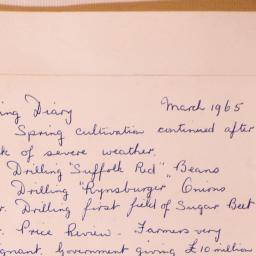 ing Diary March 1965
Spring cultivation continued after
k of severe weather.
Drilling "Suffolk Red" Beans
Drilling "Rynsburger" Onions
r. Drilling first field of Sugar Beet
r. Price Review - Farmers very
ignant, Government giving £10 million